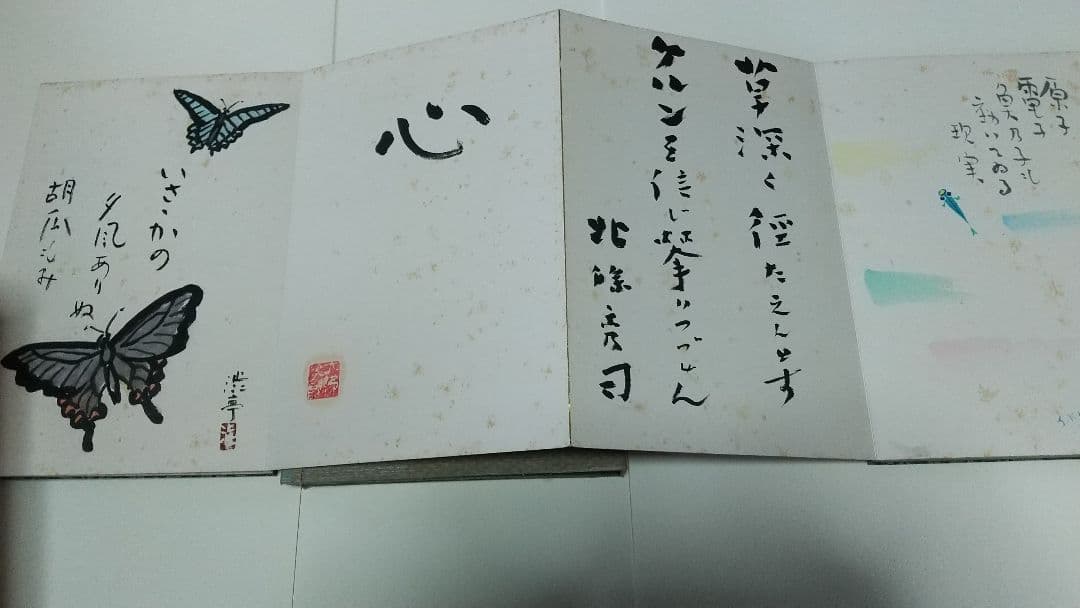 原子
電子
魚の子も
動いてゐる
現実
草深く径たえんとす
ケルンを信じ攀りつづけん
北條亮司
心
いさゝかの
夕風ありぬ
胡瓜もみ